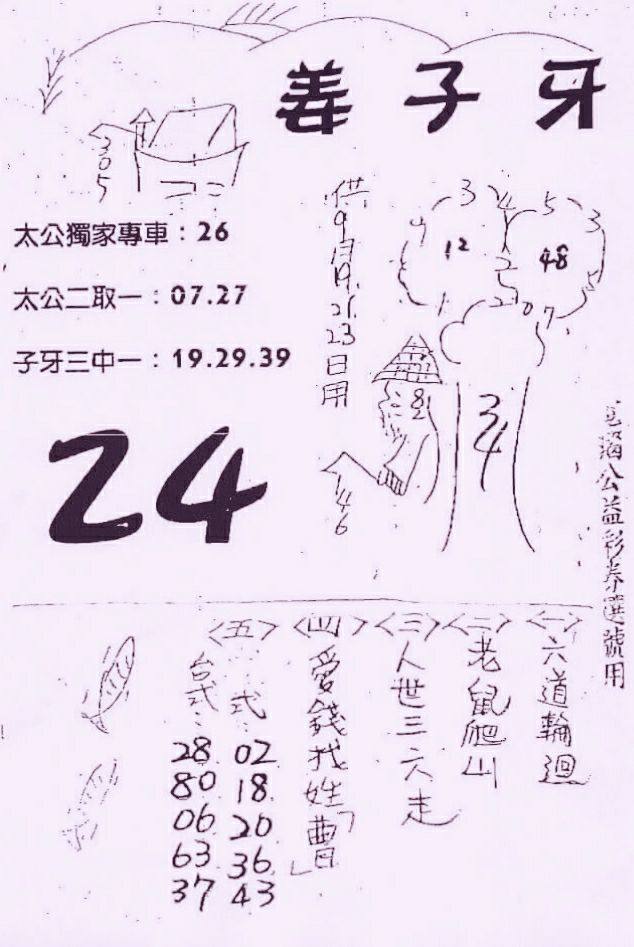 姜子牙
305
供9月19.21.23日用
3
4
5
3
12
48
5
7
34
82
146
太公獨家專車：26
太公二取一：07.27
子牙三中一：19.29.39
24
公益彩券選號用
〈一〉六道輪迴
〈二〉老鼠爬山
〈三〉人世三六走
〈四〉愛錢找姓「曹」
〈五〉
式：02 18 20 36 43
台式：28 80 06 63 37